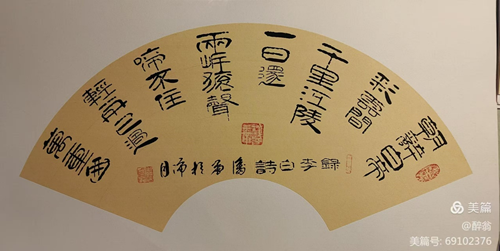 朝辭白帝
彩雲間
千里江陵
一日還
兩岸猿聲
啼不住
輕舟已過
萬重山
錄李白詩
美篇
@醉翁
美篇号: 69102376